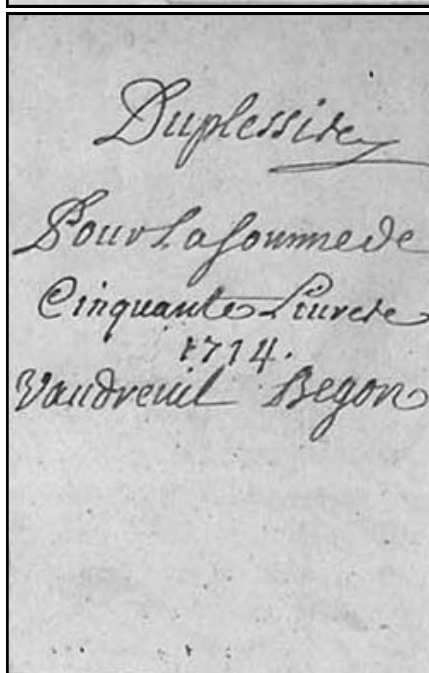 Duplessis
Pour La somme de
Cinquante Livres
1714.
Vaudreuil Begon